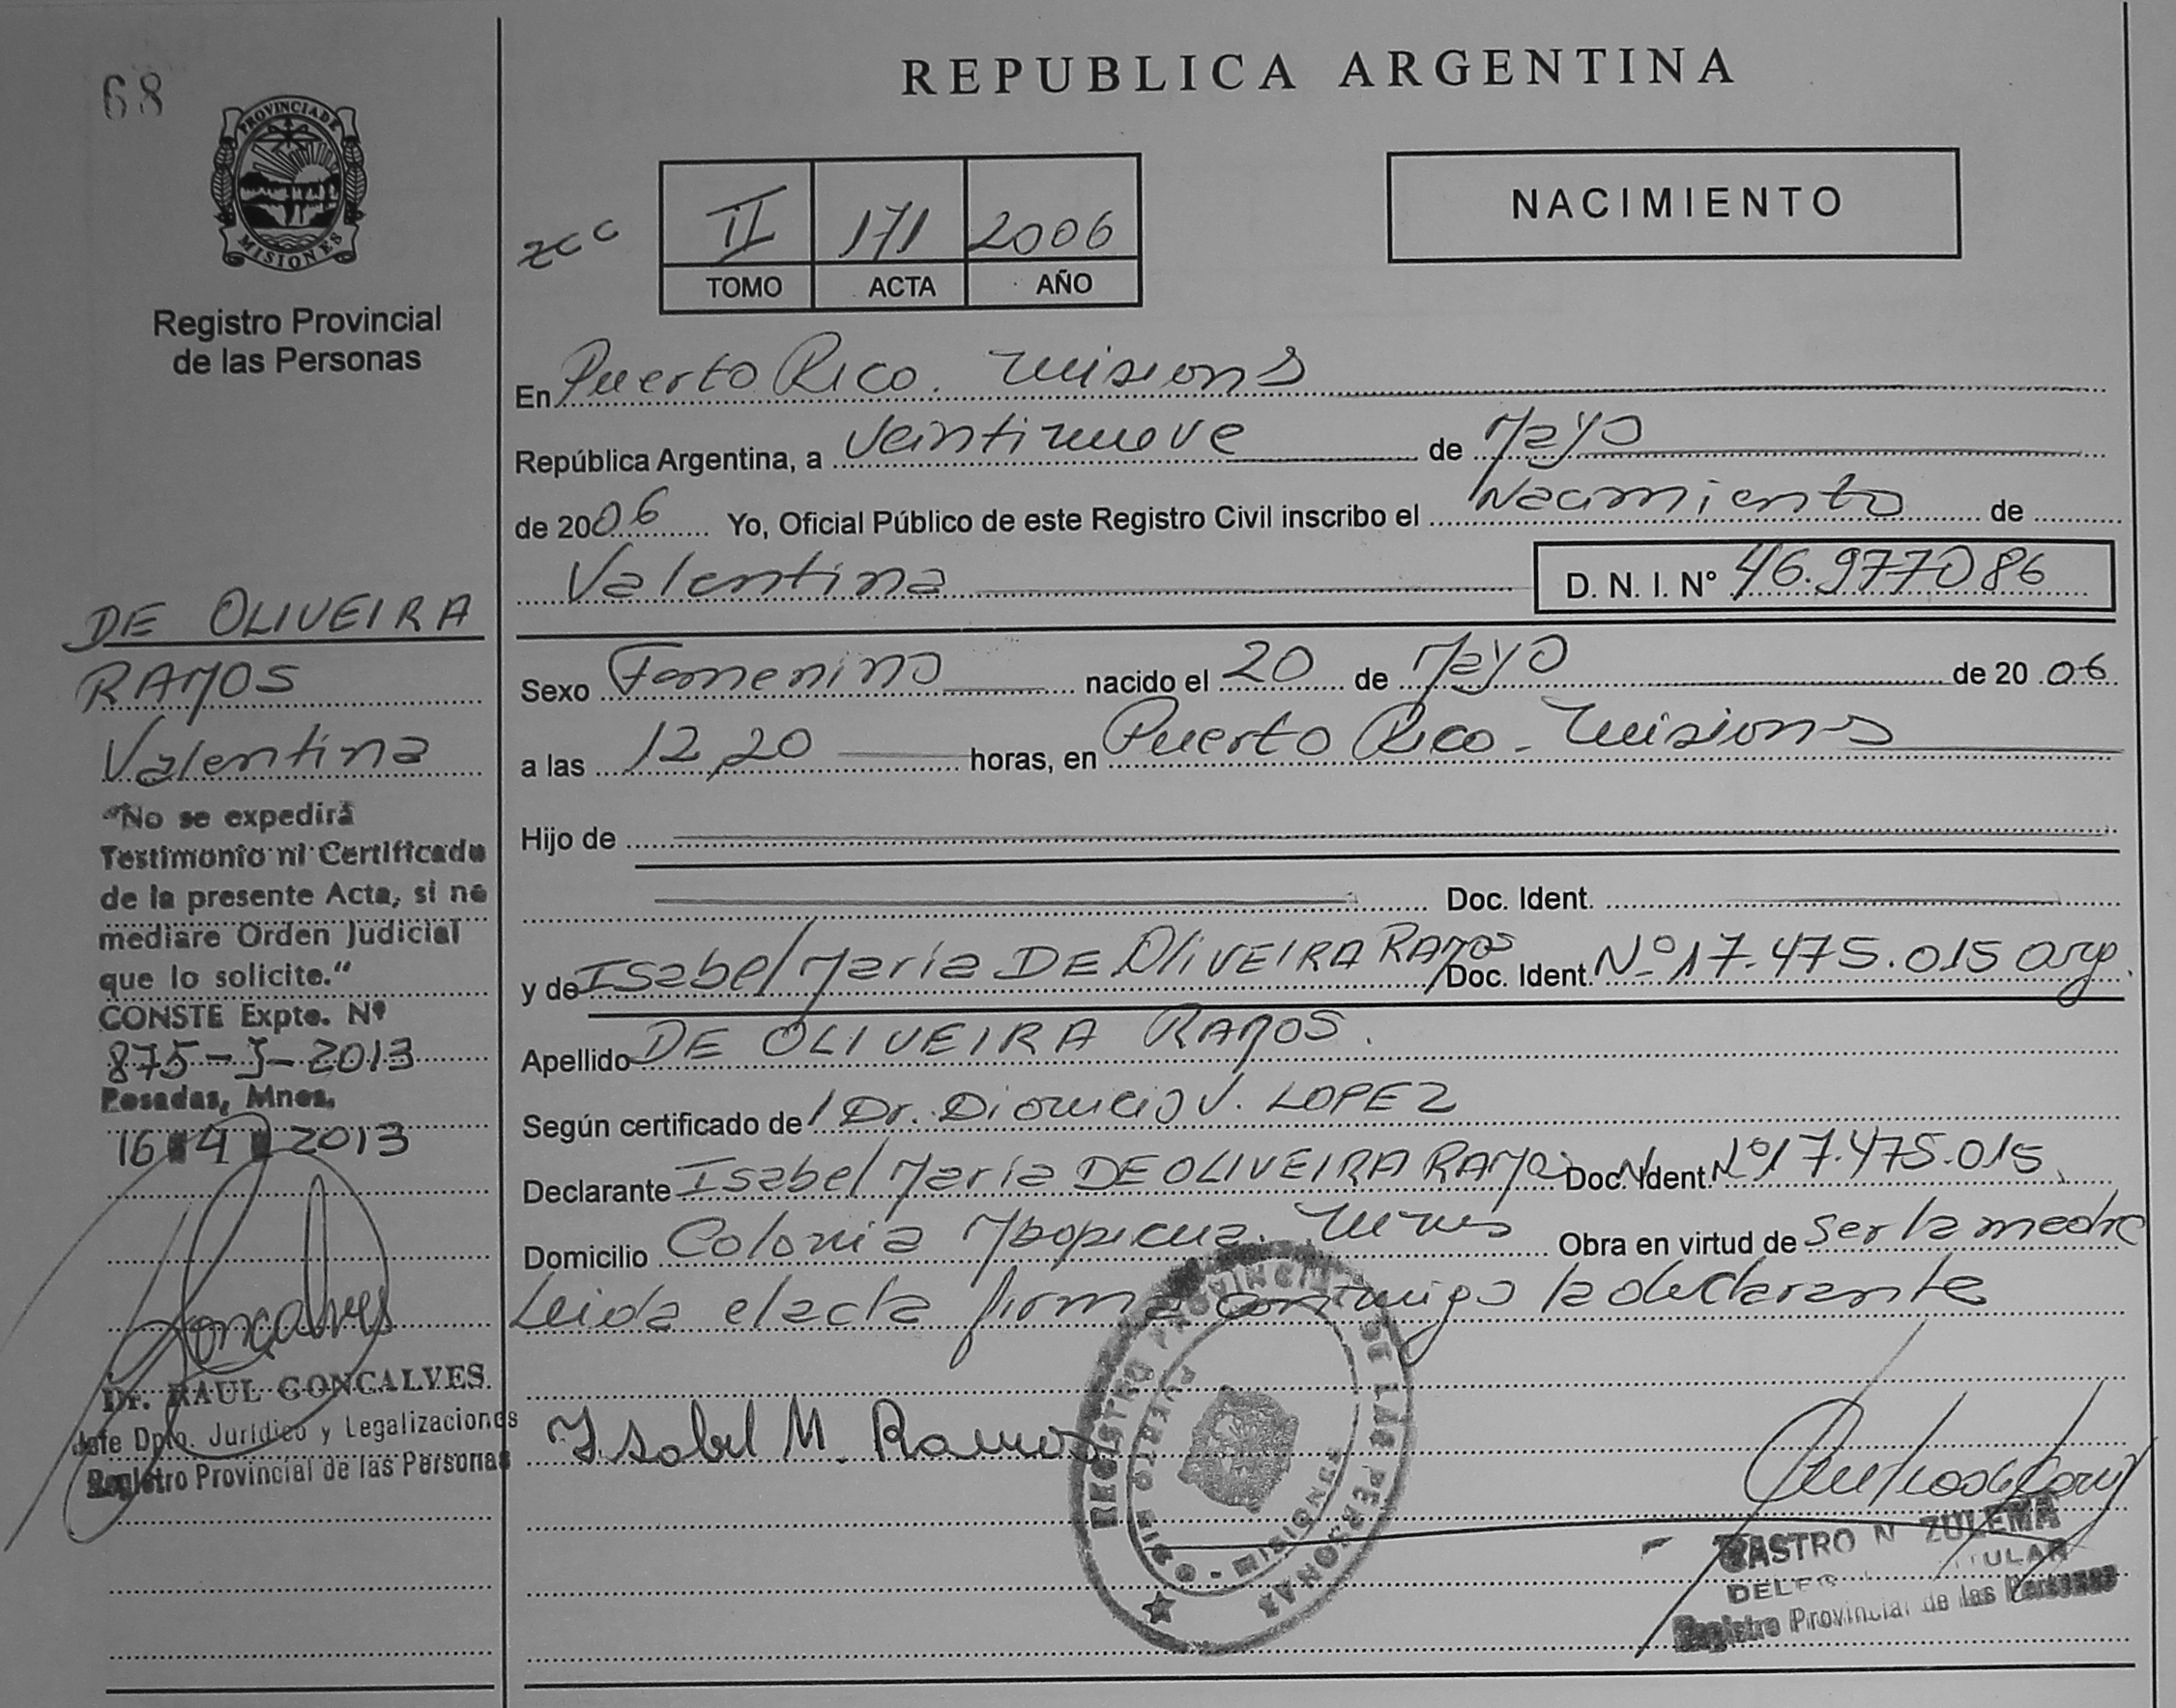 68
PROVINCIA DE
MISIONES
Registro Provincial
de las Personas
DE OLIVEIRA
RAMOS
Valentina
"No se expedirá
Testimonio ni Certificado
de la presente Acta, si no
mediare Orden Judicial
que lo solicite."
CONSTE Expte. Nº
875-J-2013
Posadas, Mnes.
16 4 2013
Goncalves
Dr. RAUL GONCALVES
Jefe Dpto. Jurídico y Legalizaciones
Registro Provincial de las Personas
REPUBLICA ARGENTINA
II 171 2006
TOMO ACTA AÑO
NACIMIENTO
En Puerto Rico. Misions
República Argentina, a Veintinueve de Mayo
de 2006 Yo, Oficial Público de este Registro Civil inscribo el Nacimiento de
Valentina D. N. I. Nº 46.977086
Sexo Femenino nacido el 20 de Mayo de 20 06
a las 12,20 horas, en Puerto Rico - Misions
Hijo de
Doc. Ident.
y de Isabel María DE OLIVEIRA RAMOS Doc. Ident. Nº 17.475.015 arg.
Apellido DE OLIVEIRA RAMOS.
Según certificado del Dr. Dionicio V. LOPEZ
Declarante Isabel María DE OLIVEIRA RAMOS Doc. Ident. Nº 17.475.015
Domicilio Colonia Obra en virtud de ser la madre
Leida el acta firma conmigo la declarante
Isabel M. Ramos
REGISTRO PROVINCIAL DE LAS PERSONAS
PUERTO RICO - MISIONES
CASTRO N ZULEMA
Registro Provincial de las Personas